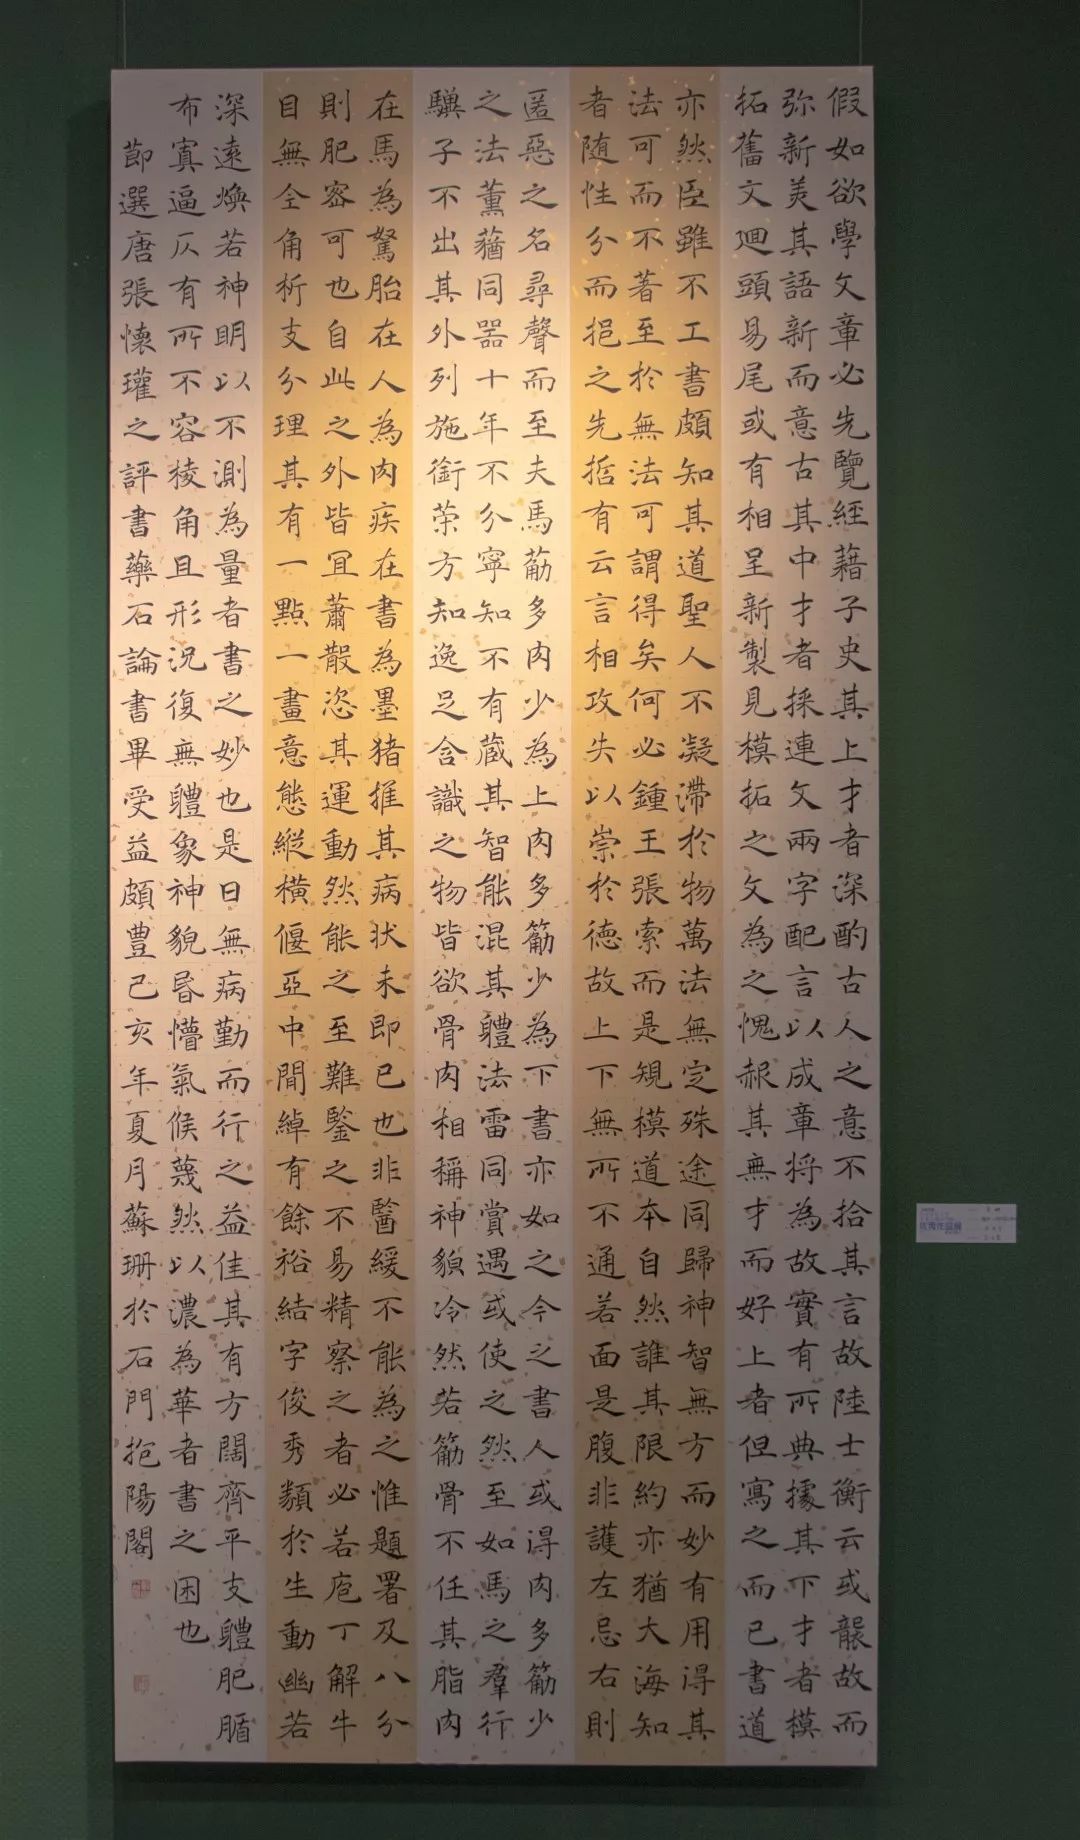 假如欲學文章必先覽經藉子史其上才者深酌古人之意不拾其言故陸士衡云或襲故而
弥新美其語新而意古其中才者採連文兩字配言以成章将為故實有所典據其下才者模
拓舊文廻頭易尾或有相呈新製見模拓之文為之愧赧其無才而好上者但寫之而已書道
亦然臣雖不工書頗知其道聖人不凝滯於物萬法無定殊途同歸神智無方而妙有用得其
法可而不著至於無法可謂得矣何必鍾王張索而是規模道本自然誰其限約亦猶大海知
者随性分而挹之先哲有云言相攻失以崇於德故上下無所不通若面是腹非護左忌右則
匿惡之名尋聲而至夫馬筋多肉少為上肉多筋少為下書亦如之今之書人或得肉多筋少
之法薰蕕同器十年不分寧知不有蔵其智能混其軆法雷同賞遇或使之然至如馬之羣行
驥子不出其外列施銜策方知逸足含識之物皆欲骨肉相稱神貌冷然若筋骨不任其脂肉
在馬為駑胎在人為肉疾在書為墨猪推其病状未即已也非醫緩不能為之惟題署及八分
則肥密可也自此之外皆宜蕭散恣其運動然能之至難鑒之不易精察之者必若庖丁解牛
目無全角析支分理其有一點一畫意態縱橫偃亞中間綽有餘裕結字俊秀類於生動幽若
深遠煥若神明以不測為量者書之妙也是曰無病勤而行之益佳其有方闊齊平支軆肥腯
布寘逼仄有所不容棱角且形况復無軆象神貌昬懵氣候蔑然以濃為華者書之困也
節選唐張懷瓘之評書藥石論書畢受益頗豐己亥年夏月蘇珊於石門抱陽閣